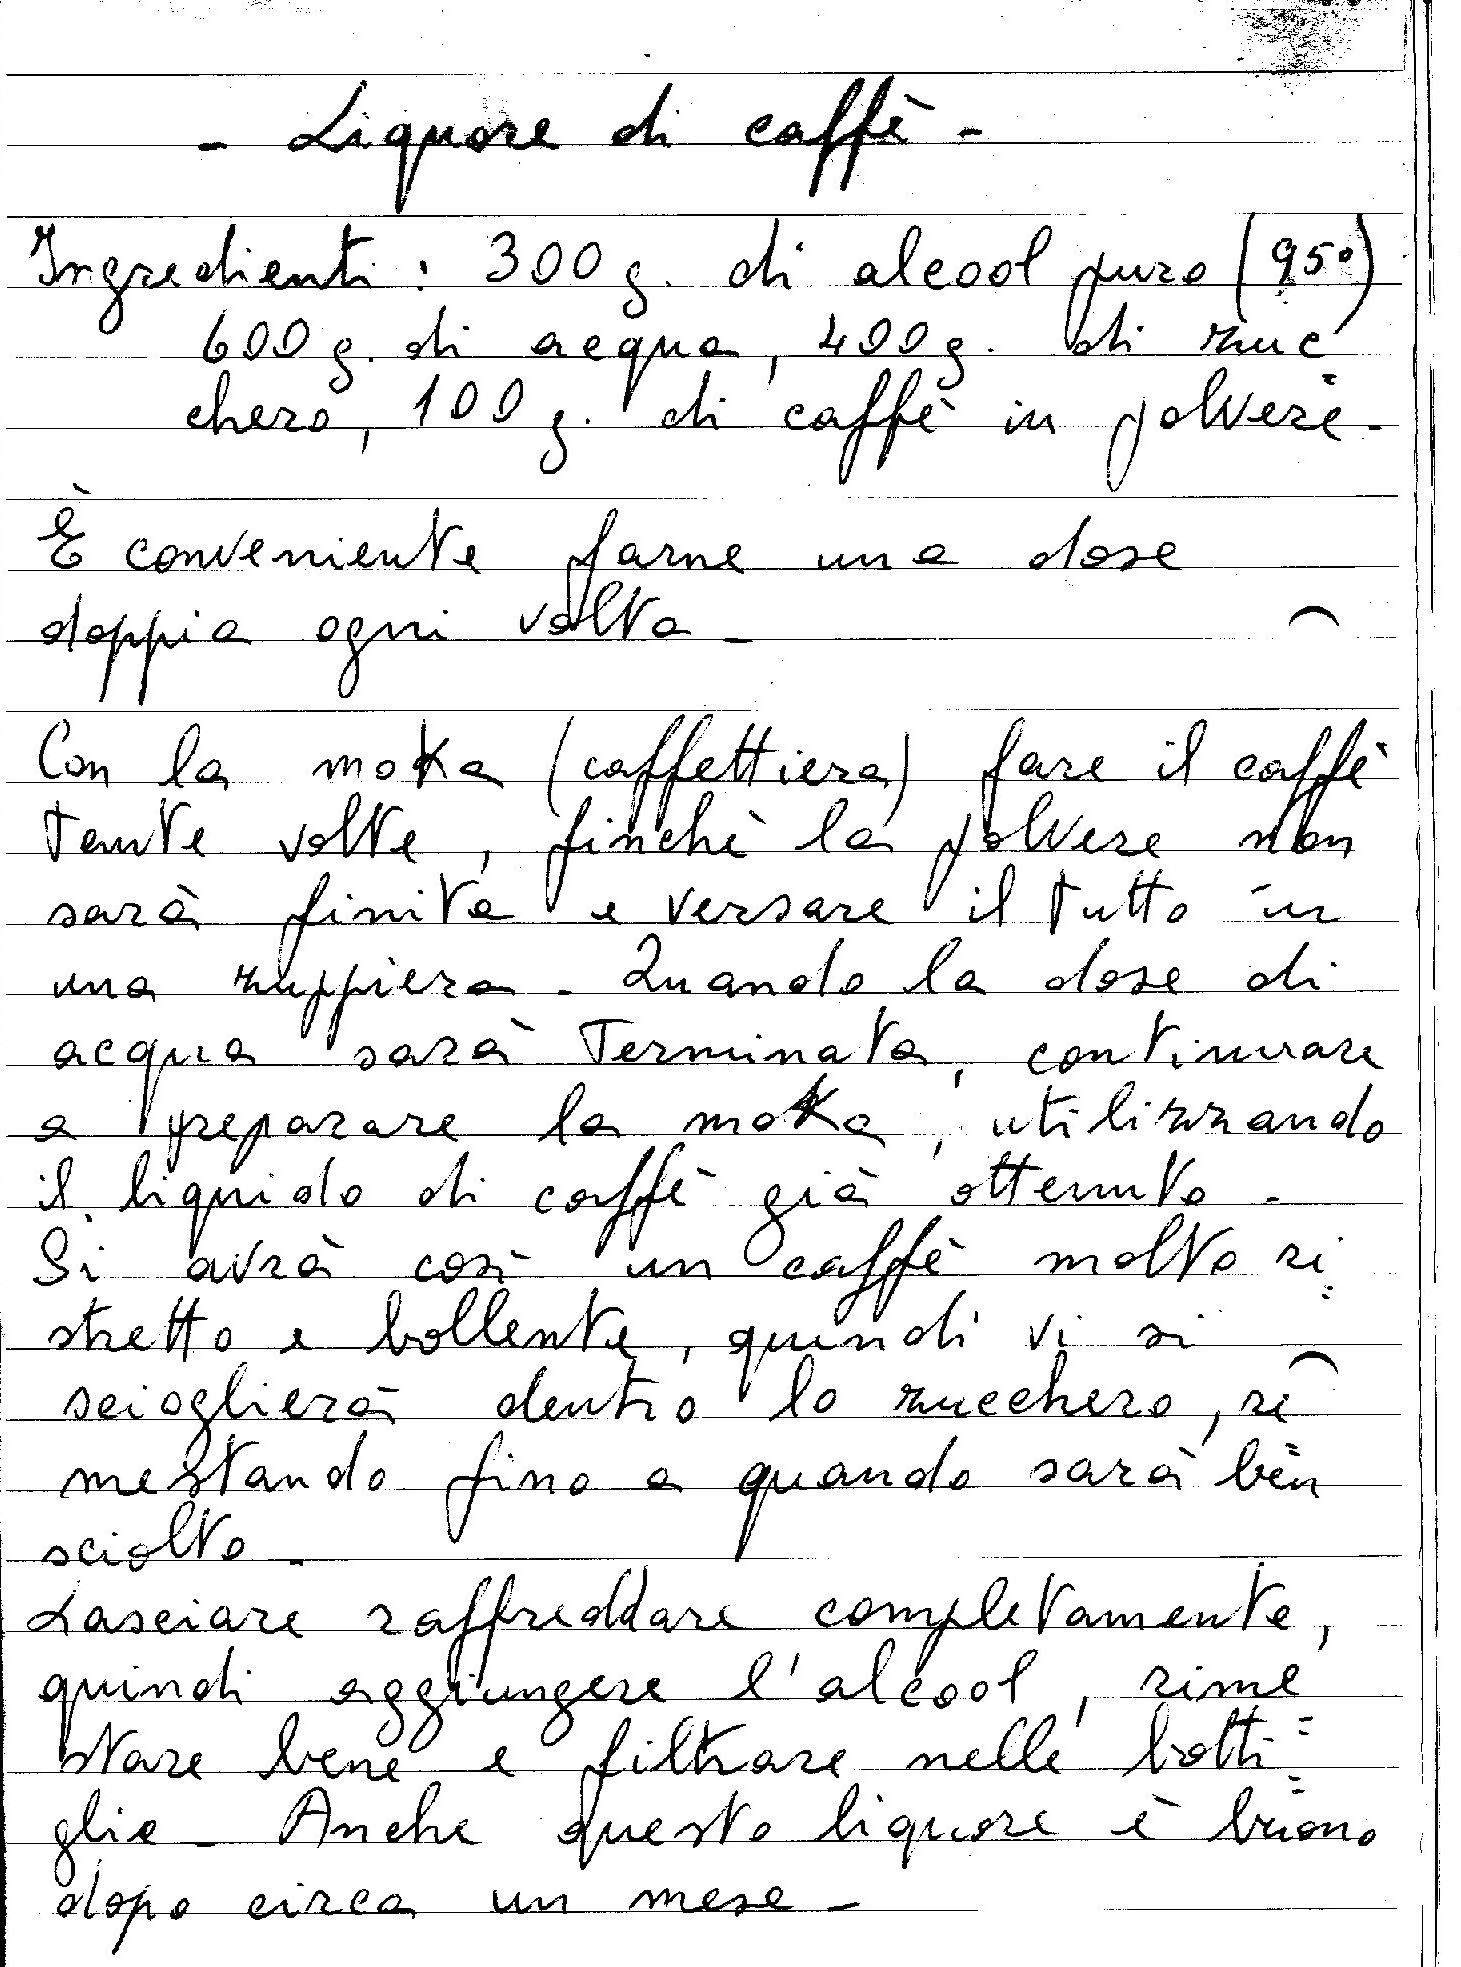 - Liquore di caffè -
Ingredienti: 300 g. di alcool puro (95°)
600 g. di acqua, 400 g. di zuc
chero, 100 g. di caffè in polvere -
È conveniente farne una dose
doppia ogni volta -
Con la moka (caffettiera) fare il caffè
tante volte, finchè la polvere non
sarà finita e versare il tutto in
una zuppiera - Quando la dose di
acqua sarà terminata, continuare
a preparare la moka, utilizzando
il liquido di caffè già ottenuto -
Si avrà così un caffè molto ri=
stretto e bollente, quindi vi si
scioglierà dentro lo zucchero, ri=
mestando fino a quando sarà ben
sciolto -
Lasciare raffreddare completamente,
quindi aggiungere l'alcool, rime=
stare bene e filtrare nelle botti=
glie - Anche questo liquore è buono
dopo circa un mese -